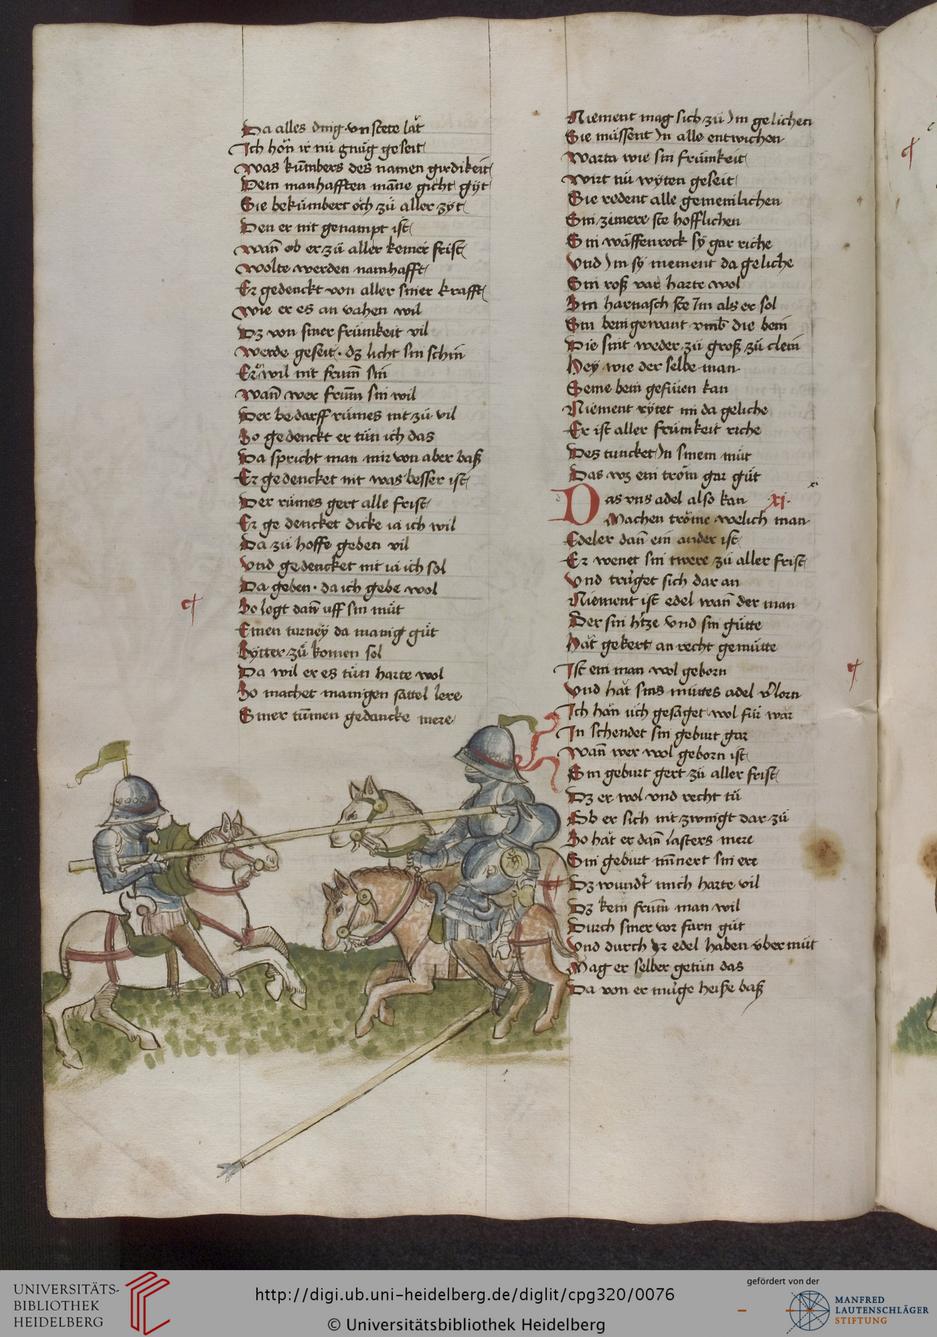 Da alles ding vnstete lat
Ich hon ir nu gnug geseit
was kumbers des namen girdikeit
Dem manhafften mane gicht gyt
Sie bekumbert och zu aller zyt
Den er nit genampt ist
wan ob er zu aller keiner frist
wolte werden namhafft
Er gedenckt von aller siner krafft
wie er es an vahen wil
Dz von siner frumkeit vil
werde geseit · dz licht sin schin
Er wil nit frum sin
wan wer frum sin wil
Der bedarff rumes nit zu vil
So gedenckt er tun ich das
Da spricht man mir von aber bass
Er gedencket nit was besser ist
Der rumes gert alle frist
Er ge dencket dicke ia ich wil
Da zu hoffe geben vil
Vnd gedencket nit ia ich sol
Da geben · da ich gebe wol
So legt dan uff sin mut
Einen turney da manig gut
Rytter zu komen sol
Da wil er es tun harte wol
So machet manigen sattel lere
Siner tummen gedancke mere
Niement mag sich zu Jm gelichen
Sie mussent Jn alle entwichen
Warta wie sin frumkeit
wirt nu wyten geseit
Sie redent alle gemeinlichen
Sin zimere ste hofflichen
Sin waffenrock sy gar riche
Vnd Jm sy niement da geliche
Sin ross var harte wol
Sin harnasch ste Jm als er sol
Sin beingewant vmb die bein
Die sint weder zu gross zu clein
Hey wie der selbe man
Seine bein gefuren kan
Niement rytet im da geliche
Er ist aller frumkeit riche
Des duncket Jn sinem mut
Das wz ein trom gar gut
Das vns adel also kan xj.
Machen trome welich man
Edeler dan ein ander ist
Er wenet sin twere zu aller frist
Vnd truget sich dar an
Niement ist edel wan der man
Der sin htze vnd sin gutte
Hat gekert an recht gemutte
Ist ein man wol geborn
Vnd hat sins muttes adel vlorn
Ich han uch gesaget wol fur war
In schendet sin geburt gar
wan wer wol geborn ist
Sin geburt gert zu aller frist
Dz er wol vnd recht tu
Ob er sich nit zwingt dar zu
So hat er dan lasters mere
Sin geburt minert sin ere
Dz wundt mich harte vil
Dz kein frum man wil
Durch siner vor farn gut
Vnd durch ir edel haben vbermut
Mag er selber getun das
Da von er muge heisse bass
UNIVERSITÄTS-
BIBLIOTHEK
HEIDELBERG
http://digi.ub.uni-heidelberg.de/diglit/cpg320/0076
© Universitätsbibliothek Heidelberg
gefördert von der
MANFRED
LAUTENSCHLÄGER
STIFTUNG